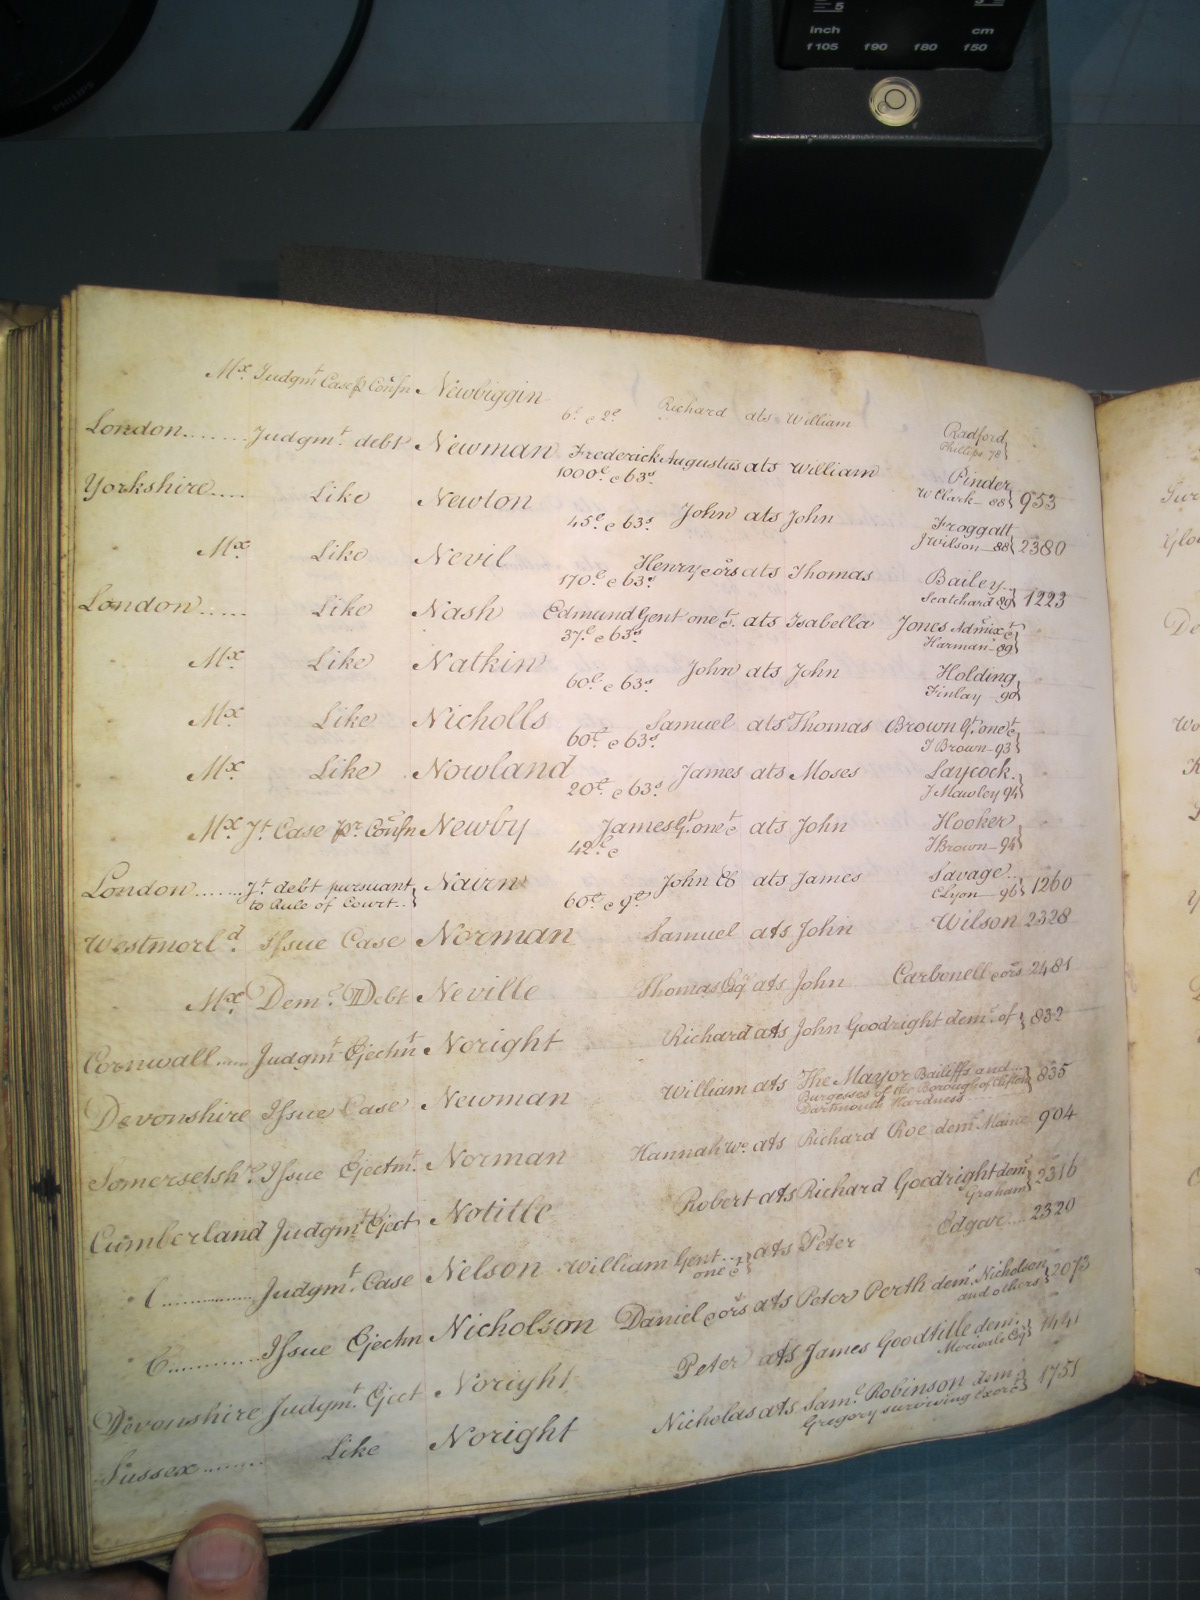 inch cm
f105 f90 f80 f50
PHILIPS
Mx. Judgmt Case p Confn Newbiggin 6£ e 2d Richard ats William Radford
Phillips 78
London....... Judgmt. debt Newman Frederick Augustus ats William Pinder
1000£ e 63s W Clark - 88 953
Yorkshire..... Like Newton John ats John Froggatt
45£ e 63s J Wilson - 88 2380
Mx Like Nevil Henry e ors ats Thomas Bailey
170£ e 63s Scatchard 89 1223
London...... Like Nash Edmund Gent one &c. ats Isabella Jones Admix &c
37£ e 63s Harman - 89
Mx Like Natkin John ats John Holding
60£ e 63s Finlay 90
Mx Like Nicholls Samuel ats Thomas Brown Gt. one &c
60£ e 63s T Brown - 93
Mx Like Nowland James ats Moses Laycock
20£ e 63s J Mawley 94
Mx Jt Case pr Confn Newby James Gt. one &c ats John Hooker
42£ e T Brown - 94
London....... Jt debt pursuant Nairn John ats James Savage
to Rule of Court.. 60£ e 9d C Lyon - 96 1260
Westmorld. Issue Case Norman Samuel ats John Wilson 2328
Mx Demr. Debt Neville Thomas Esqr ats John Carbonell e ors 2481
Cornwall..... Judgmt Ejectmt Noright Richard ats John Goodright demr. of 832
Devonshire Issue Case Newman William ats The Mayor Bailiffs and...
Burgesses of the Borough of Clifton 835
Dartmouth Hardness
Somersetshr. Issue Ejectmt. Norman Hannah Wo. ats Richard Roe demr. Maine 904
Cumberland Judgmt Eject Notitle Robert ats Richard Goodright demr.
Graham 2316
C............... Judgmt. Case Nelson William Gent... ats Peter Edgar.... 2320
one &c
C............ Issue Ejectn Nicholson Daniel e ors ats Peter Perth demr. Nicholson
and others 2073
Devonshire Judgmt. Eject Noright Peter ats James Goodtitle demr.
Merivale Esqr 1441
Sussex........ Like Noright Nicholas ats Saml. Robinson demr.
Gregory surviving Exor 1751